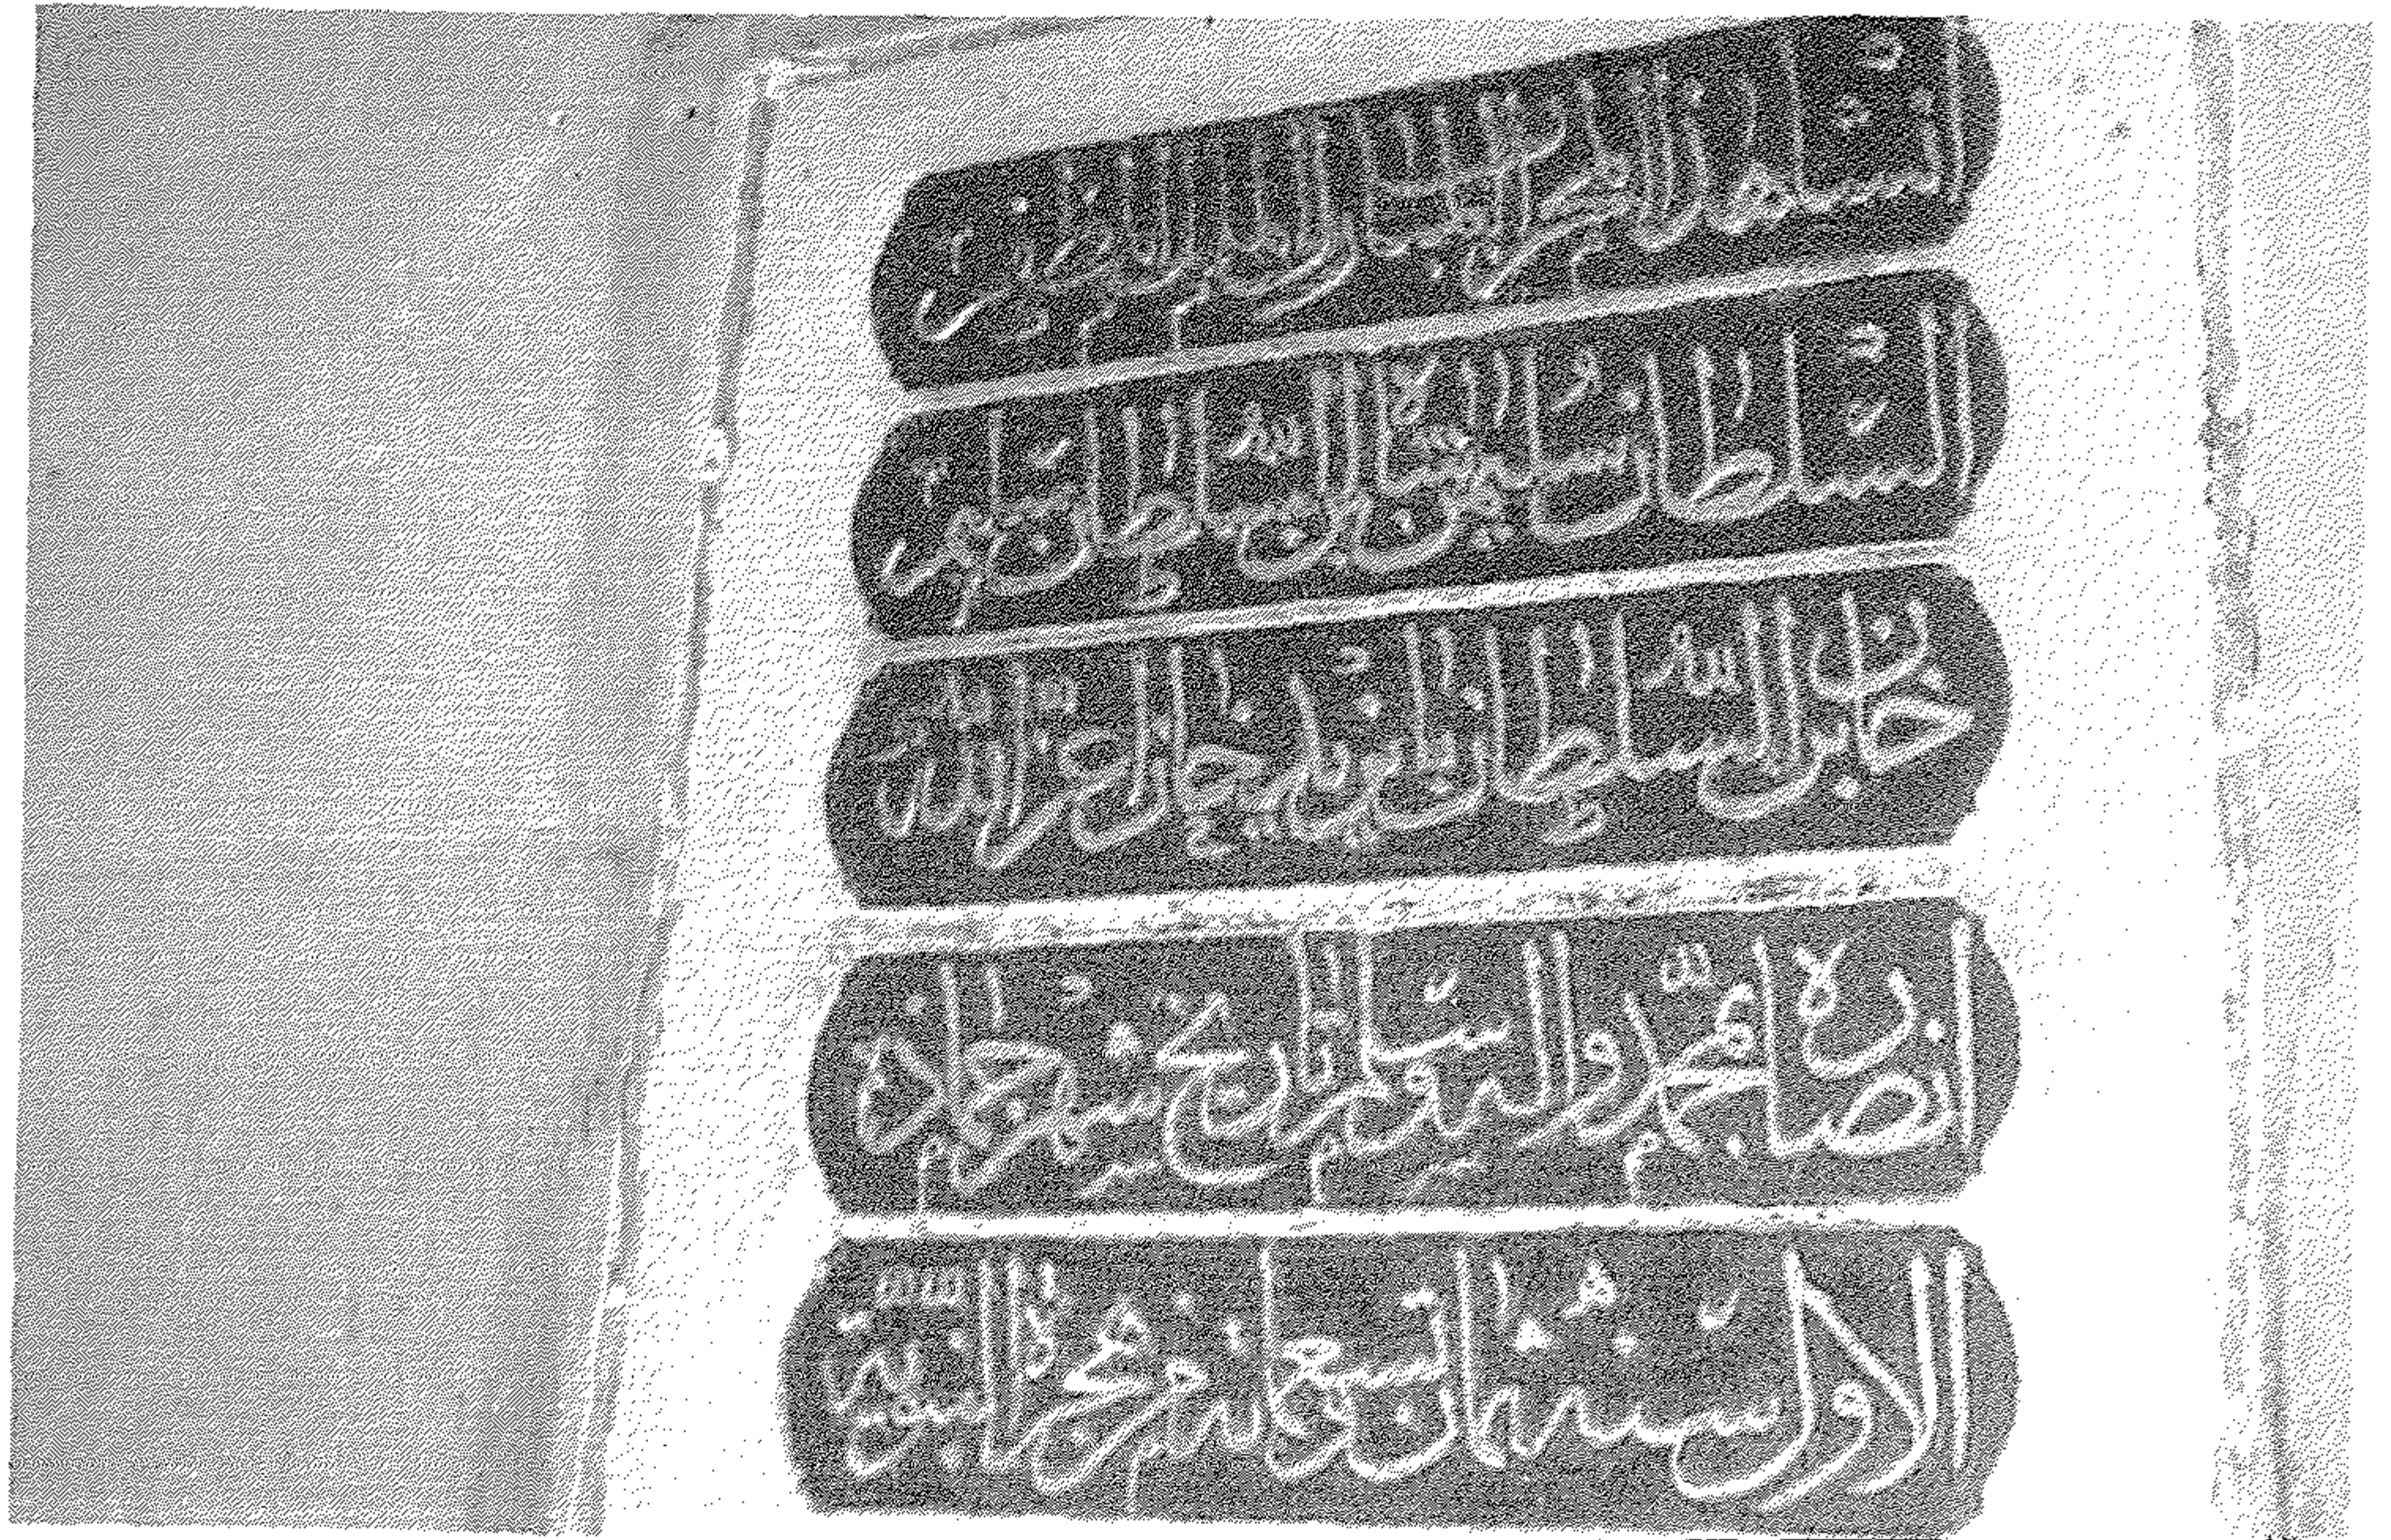 انشا هذا المحراب المبارك الملك المظفر
السلطان سليمان شاه ابن السلطان سليم
خان بن السلطان بايزيد خان اعز الله
انصاره بمحمد واله وسلم تاريخ شهر جماد
الاول سنه ثمان وتسعمايه من هجرة النبوية